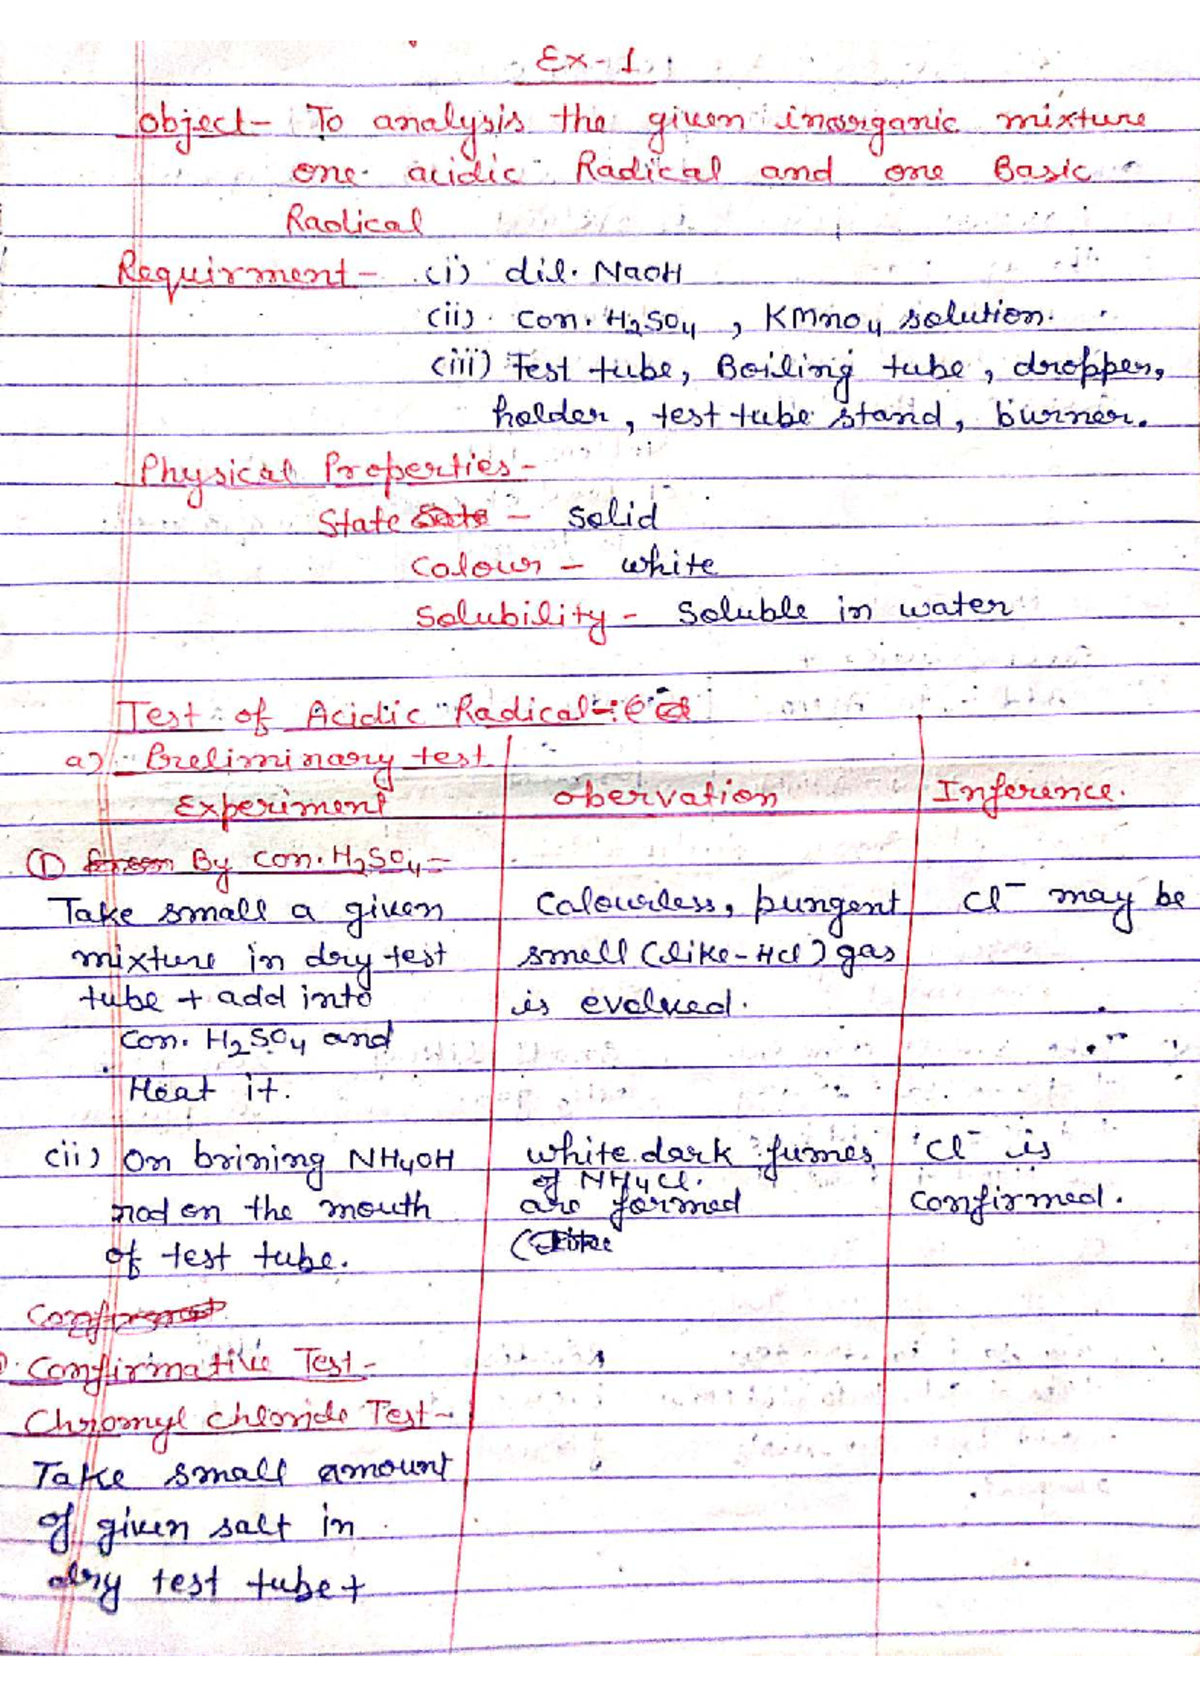 Ex-1
Object- To analysis the given inorganic mixture
one acidic Radical and one Basic
Radical
Requirment- (i) dil. NaOH
(ii). Con. H2SO4, KMnO4 solution.
(iii) Test tube, Boiling tube, dropper,
holder, test tube stand, burner.
Physical Properties-
State - Solid
Colour - white
Solubility - Soluble in water
Test of Acidic Radical-:
a) Preliminary test
Experiment Obervation Inference.
① By Con. H2SO4-
Take small a given Colourless, pungent Cl- may be
mixture in dry test smell (like-HCl) gas
tube + add into is evolued.
Con. H2SO4 and
Heat it.
(ii) On brining NH4OH white dark fumes Cl- is
of NH4Cl.
rod on the mouth are formed confirmed.
of test tube.
Confirmative Test-
Chromyl chloride Test-
Take small amount
of given salt in
dry test tube +